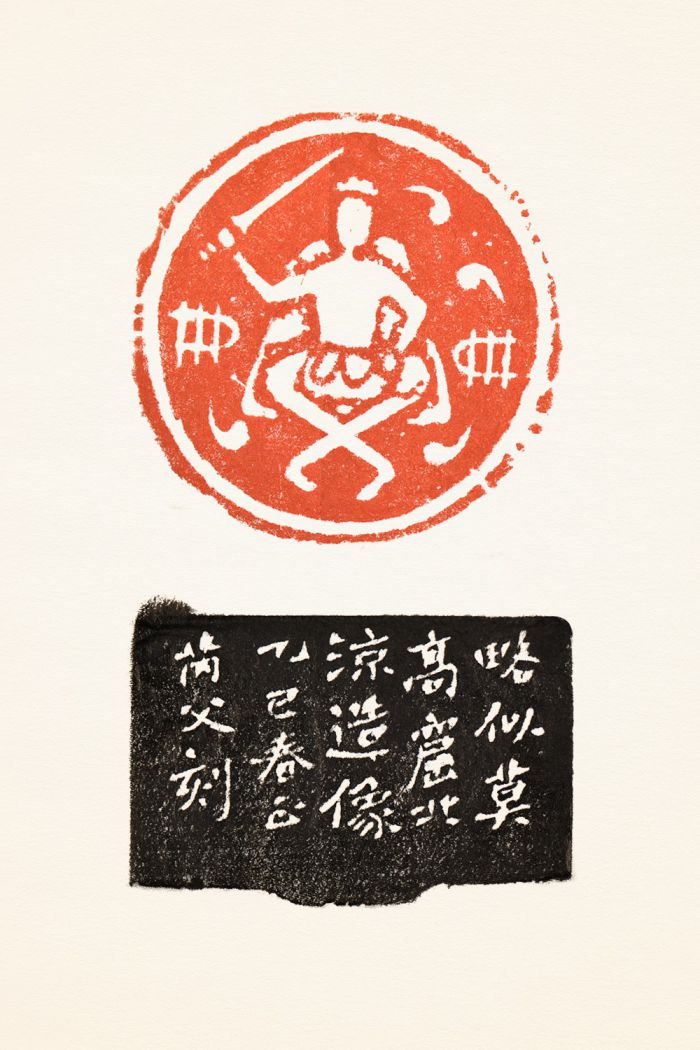 略似莫
高窟北
涼造像
乙巳春正
父刻